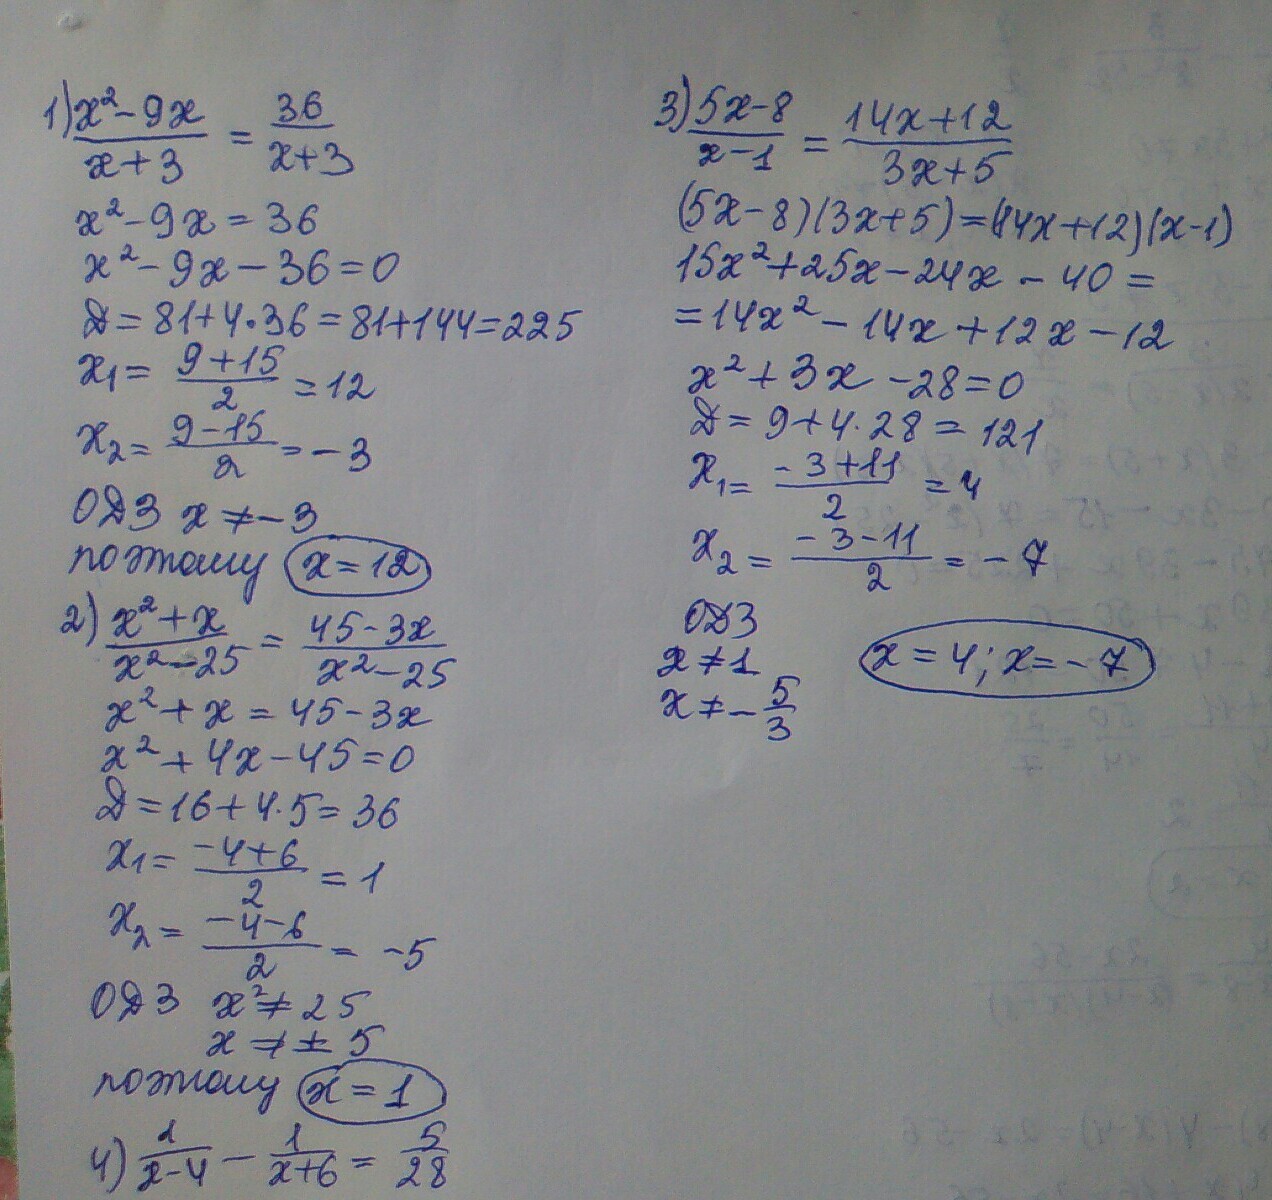 1) x²-9x/x+3 = 36/x+3
x²-9x=36
x²-9x-36=0
D=81+4·36=81+144=225
x₁= 9+15/2 =12
x₂= 9-15/2 =-3
ОДЗ x≠-3
поэтому x=12
2) x²+x/x²-25 = 45-3x/x²-25
x²+x=45-3x
x²+4x-45=0
D=16+4·5=36
x₁= -4+6/2 =1
x₂= -4-6/2 = -5
ОДЗ x²≠25
x≠±5
поэтому x=1
4) 1/x-4 - 1/x+6 = 5/28
3) 5x-8/x-1 = 14x+12/3x+5
(5x-8)(3x+5)=(14x+12)(x-1)
15x²+25x-24x-40=
=14x²-14x+12x-12
x²+3x-28=0
D=9+4·28=121
x₁= -3+11/2 =4
x₂= -3-11/2 =-7
ОДЗ
x≠1
x≠-5/3
x=4; x=-7